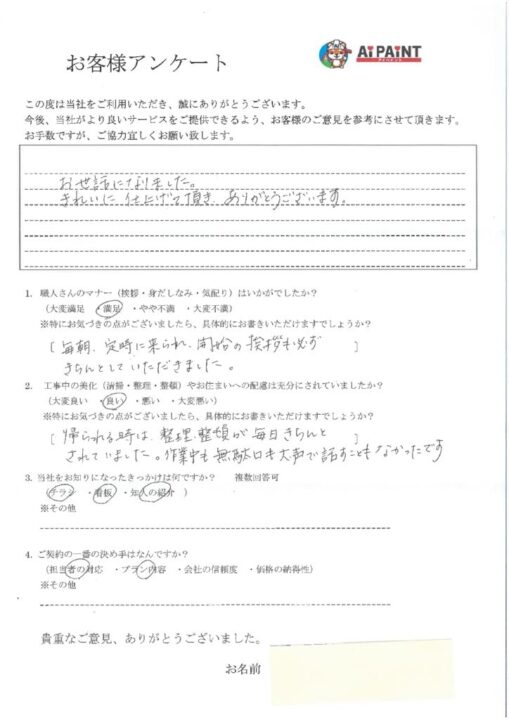 お客様アンケート
AI PAINT
この度は当社をご利用いただき、誠にありがとうございます。
今後、当社がより良いサービスをご提供できるよう、お客様のご意見を参考にさせて頂きます。
お手数ですが、ご協力宜しくお願い致します。
お世話になりました。
きれいに仕上げて頂き、ありがとうございます。
1. 職人さんのマナー（挨拶・身だしなみ・気配り）はいかがでしたか？
（大変満足 ・満足 ・やや不満 ・大変不満）
※特にお気づきの点がございましたら、具体的にお書きいただけますでしょうか？
[ 毎朝、定時に来られ、開始の挨拶も必ず ]
きちんとしていただきました。
2. 工事中の美化（清掃・整理・整頓）やお住まいへの配慮は充分にされていましたか？
（大変良い ・良い ・悪い ・大変悪い）
※特にお気づきの点がございましたら、具体的にお書きいただけますでしょうか？
[ 帰られる時は、整理、整頓が毎日きちんと ]
されていました。作業中も無駄口も大声で話すこともなかったです
3. 当社をお知りになったきっかけは何ですか？ 複数回答可
（チラシ ・看板 ・知人の紹介 ）
※その他
4. ご契約の一番の決め手はなんですか？
（担当者の対応 ・プラン内容 ・会社の信頼度 ・価格の納得性）
※その他
貴重なご意見、ありがとうございました。
お名前